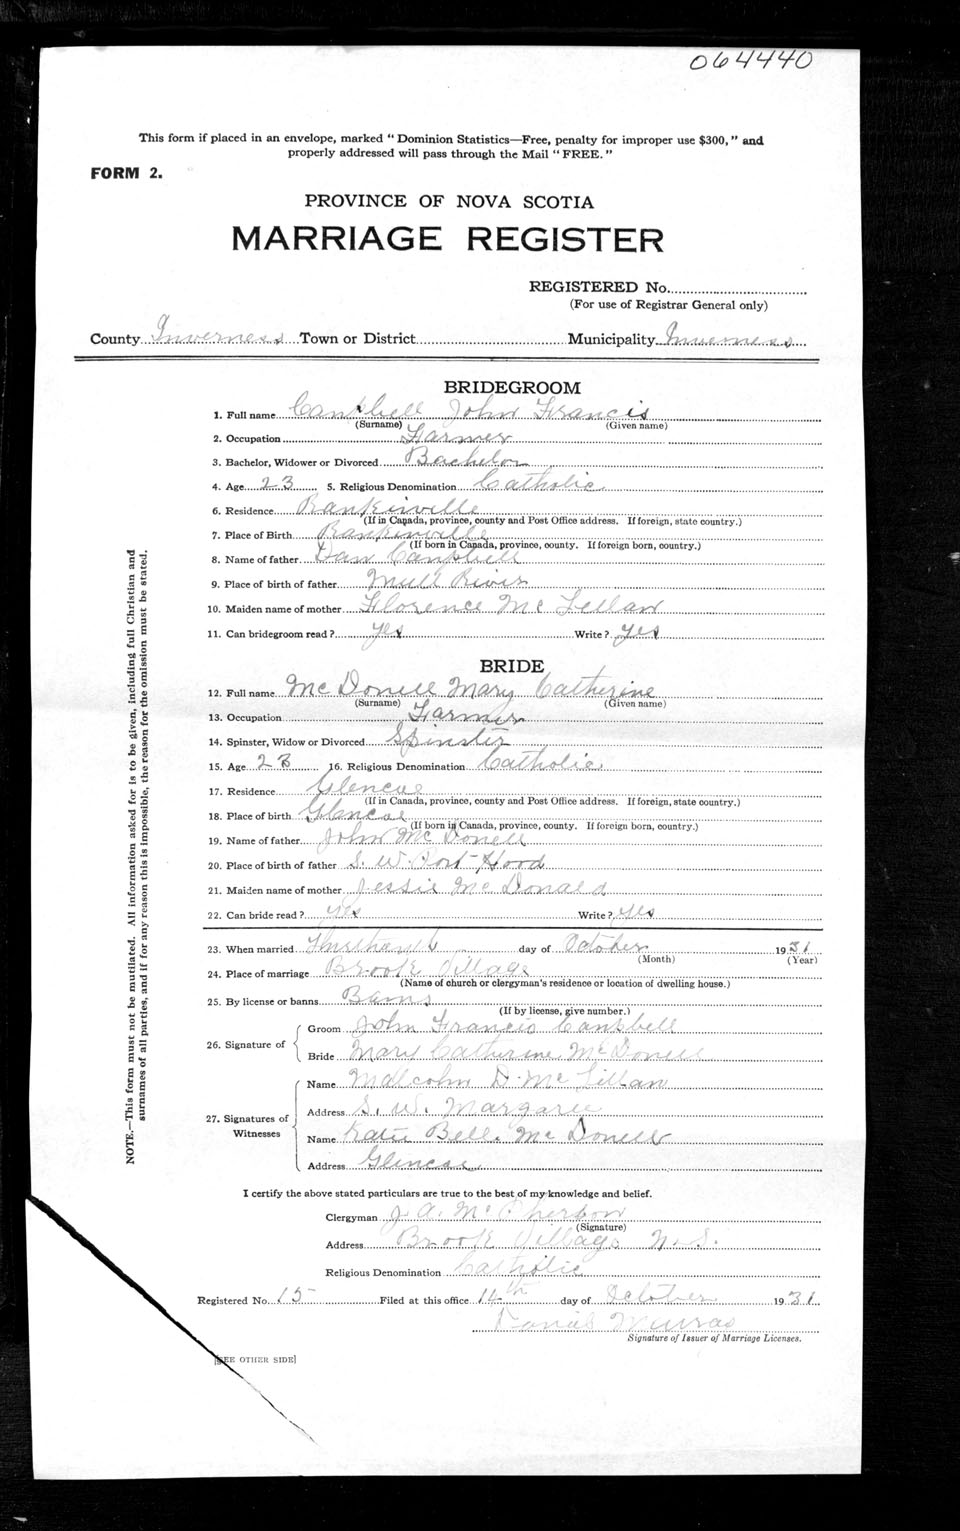 064440
This form if placed in an envelope, marked "Dominion Statistics—Free, penalty for improper use $300," and
properly addressed will pass through the Mail "FREE."
FORM 2.
PROVINCE OF NOVA SCOTIA
MARRIAGE REGISTER
REGISTERED No.
(For use of Registrar General only)
County Inverness Town or District Municipality Inverness
BRIDEGROOM
1. Full name Campbell John Francis
(Surname) (Given name)
2. Occupation Farmer
3. Bachelor, Widower or Divorced Bachelor
4. Age 23 5. Religious Denomination Catholic
6. Residence Rankinville
(If in Canada, province, county and Post Office address. If foreign, state country.)
7. Place of Birth Rankinville
(If born in Canada, province, county. If foreign born, country.)
8. Name of father Dan Campbell
9. Place of birth of father Mull River
10. Maiden name of mother Florence Mc Lellan
11. Can bridegroom read? yes Write? yes
BRIDE
12. Full name Mc Donell Mary Catherine
(Surname) (Given name)
13. Occupation Farmer
14. Spinster, Widow or Divorced Spinster
15. Age 23 16. Religious Denomination Catholic
17. Residence Glencoe
(If in Canada, province, county and Post Office address. If foreign, state country.)
18. Place of birth Glencoe
(If born in Canada, province, county. If foreign born, country.)
19. Name of father John Mc Donell
20. Place of birth of father S. W. Port Hood
21. Maiden name of mother Jessie Mc Donald
22. Can bride read? yes Write? yes
23. When married day of October 1931
(Month) (Year)
24. Place of marriage Brook Village
(Name of church or clergyman's residence or location of dwelling house.)
25. By license or banns Banns
(If by license, give number.)
26. Signature of
Groom John Francis Campbell
Bride Mary Catherine McDonell
27. Signatures of Witnesses
Name Malcolm D. Mc Lellan
Address S. W. Margaree
Name Katie Bell Mc Donell
Address Glencoe
I certify the above stated particulars are true to the best of my knowledge and belief.
Clergyman J. A. McPherson
(Signature)
Address Brook Village N.S.
Religious Denomination Catholic
Registered No. 15 Filed at this office 14th day of October 1931
Signature of Issuer of Marriage Licenses.
[SEE OTHER SIDE]
NOTE.—This form must not be mutilated. All information asked for is to be given, including full Christian and
surnames of all parties, and if for any reason this is impossible, the reason for the omission must be stated.